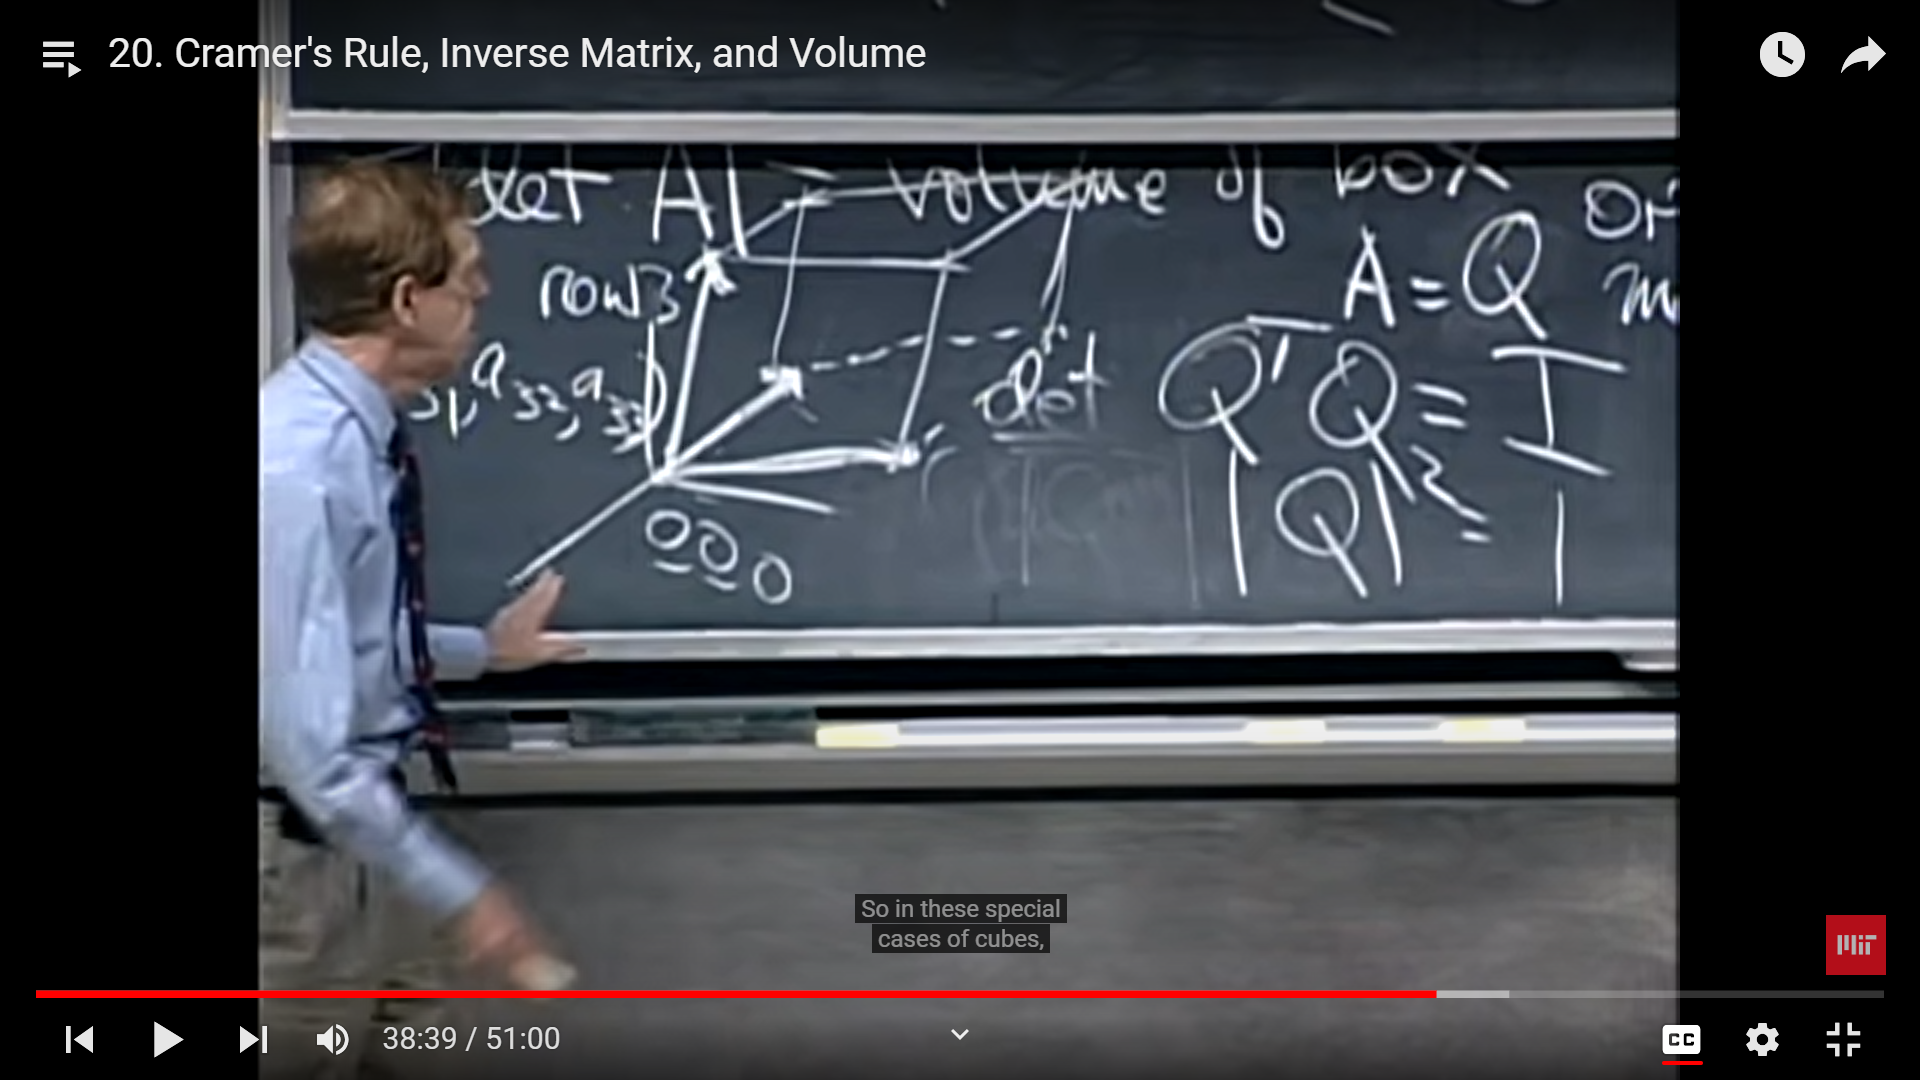 20. Cramer's Rule, Inverse Matrix, and Volume
det A| = volume of box
row 3
31, a32, a33)
000
det
A = Q
QᵀQ = I
|Q|² = 1
So in these special
cases of cubes,
MIT
38:39 / 51:00
CC